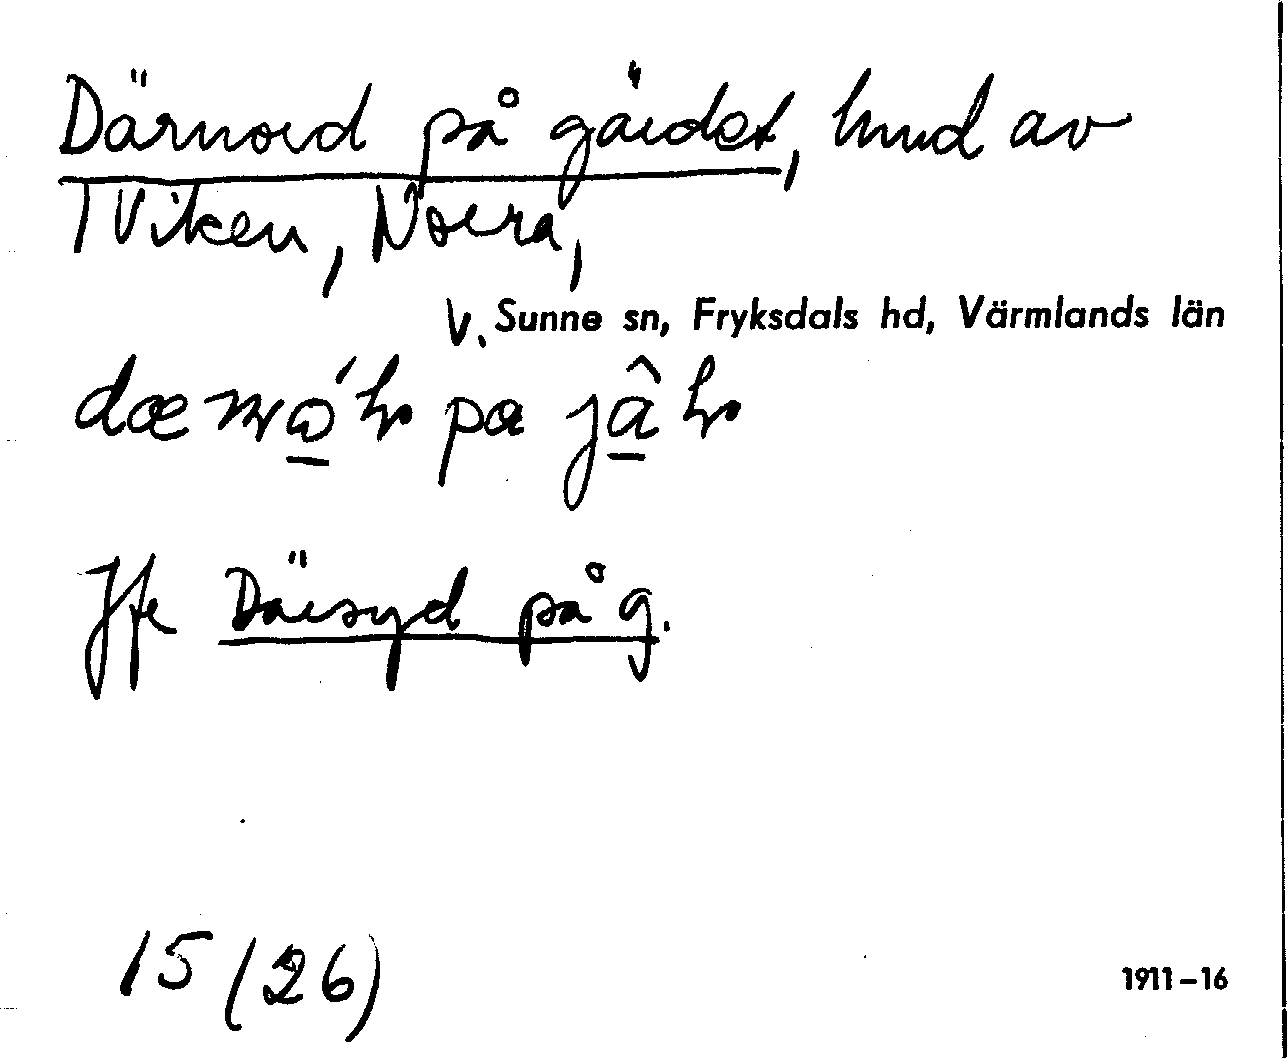 Därnord på gärdet, hmd av
1 Viken, Norra,
V. Sunne sn, Fryksdals hd, Värmlands län
pa
Jfr Därsyd på g.
15 (26)
1911–16